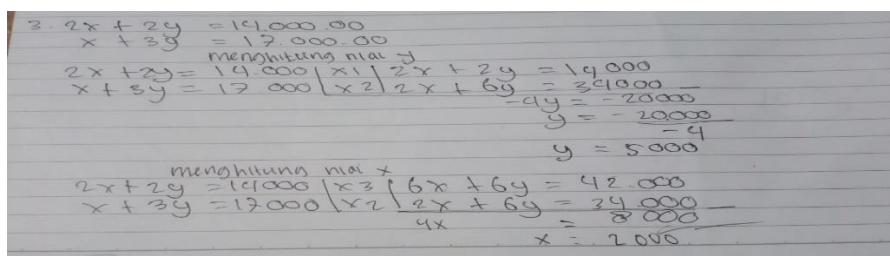 3. 2x + 2y = 14.000.00
x + 3y = 17.000.00
menghitung nilai y
2x + 2y = 14.000 | x1 | 2x + 2y = 14000
x + 3y = 17 000 | x2 | 2x + 6y = 34000 -
-4y = -20000
y = -20.000
-4
y = 5000
menghitung nilai x
2x + 2y = 14000 | x3 | 6x + 6y = 42.000
x + 3y = 17000 | x2 | 2x + 6y = 34.000 -
4x = 8000
x = 2000